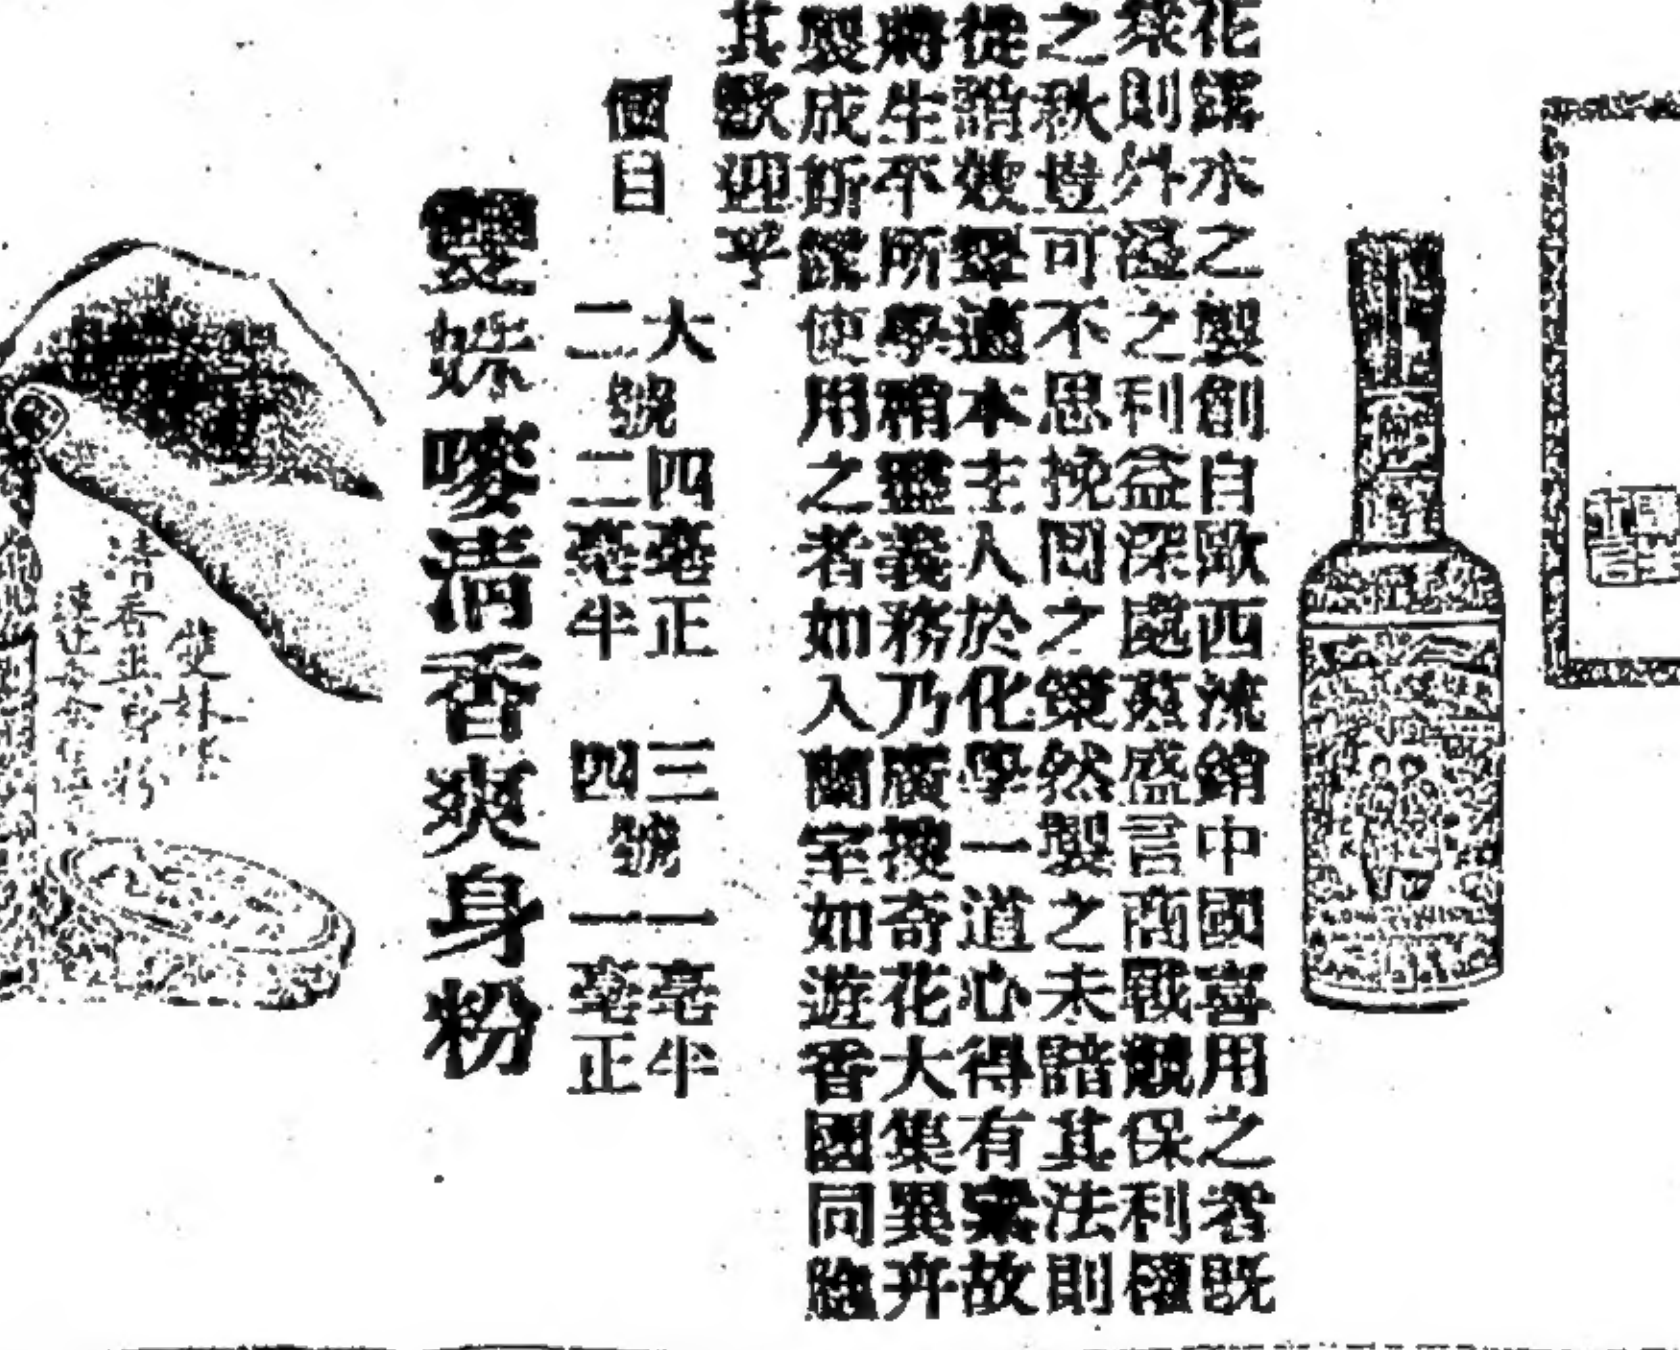 花露水之製創自歐西流銷中國喜用之者既
衆則外溢之利益深處茲盛言商戰競保利權
之秋豈可不思挽囘之策然製之未諳其法則
從諳效顰適本主人於化學一道心得有素故
將生平所學稍盡義務乃廣搜奇花大集異卉
製成斯露使用之者如入蘭室如遊香國同臨
其歡迎乎
價目
大號四毫正
二號二毫半
三號一毫半
四號一毫正
雙妹嘜清香爽身粉
雙妹嘜
清香爽身粉